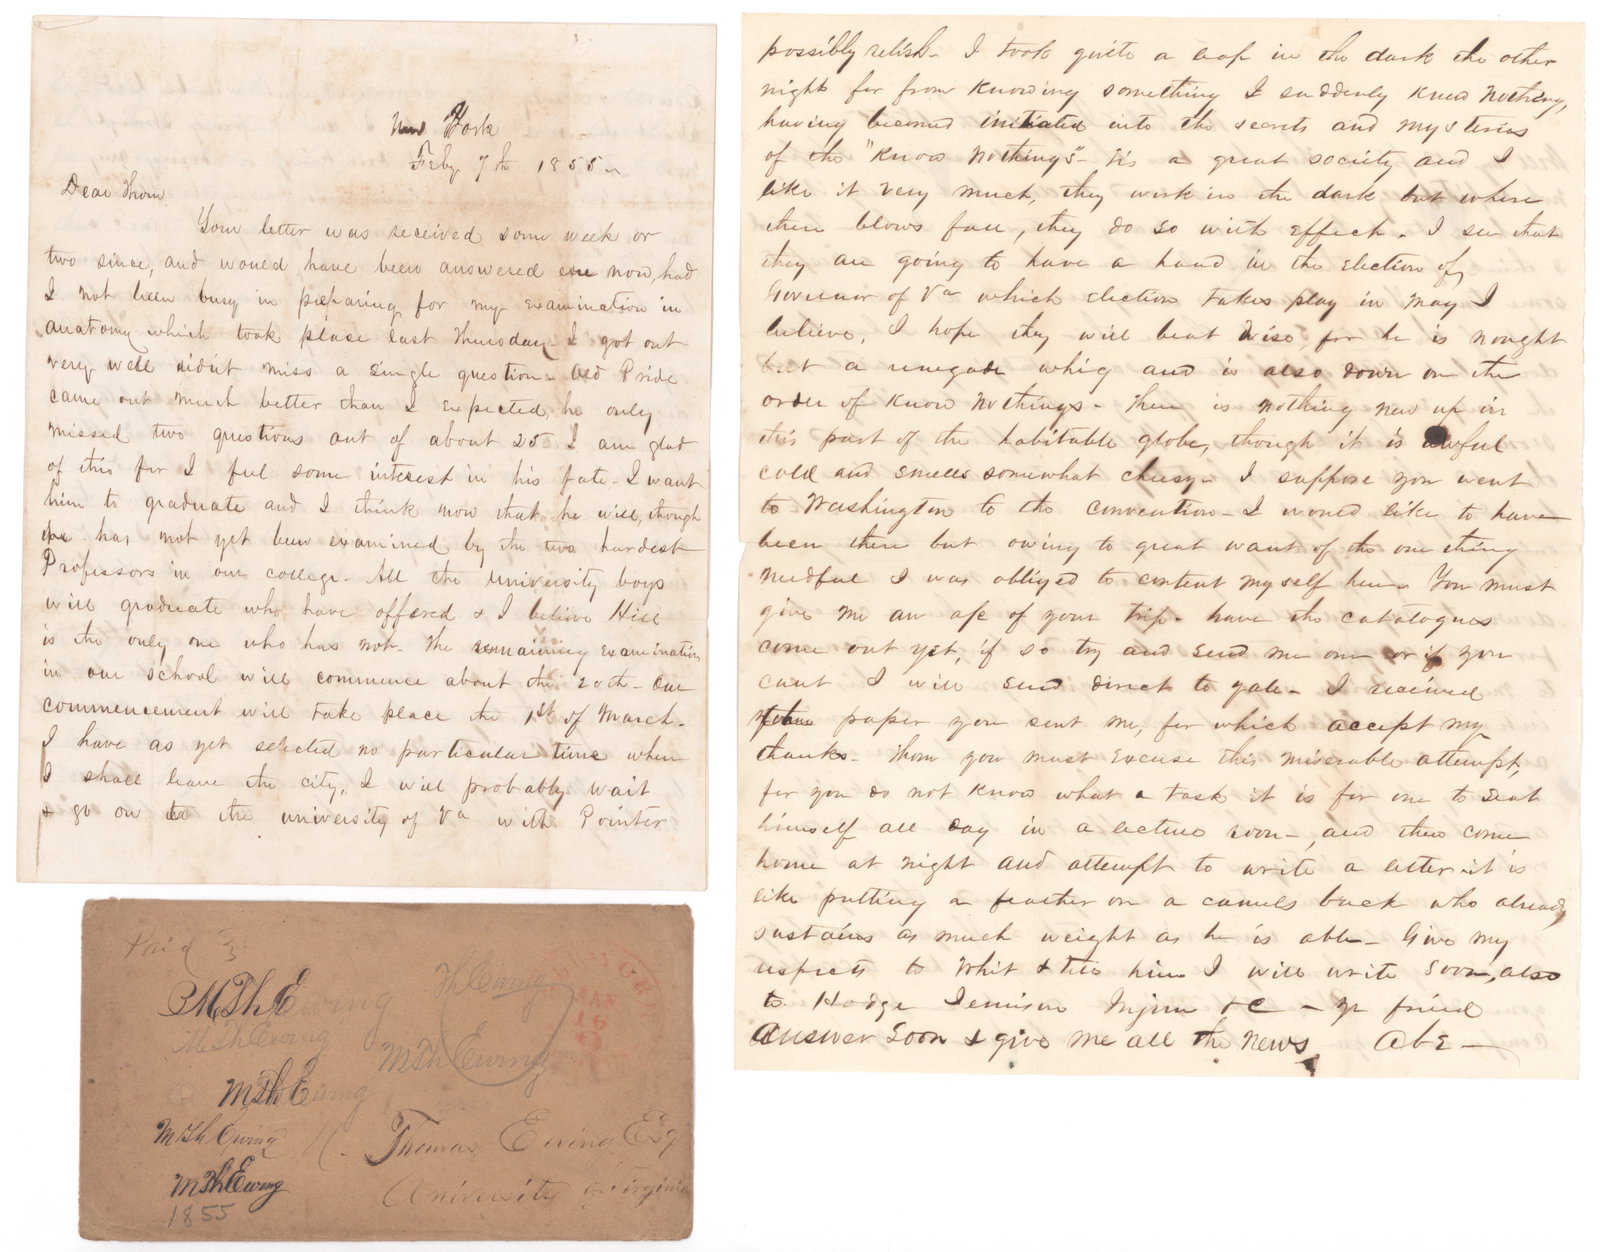 New York
Feby 7th 1855
Dear Thom
Your letter was received some week or
two since, and would have been answered ere now, had
I not been busy in preparing for my examination in
anatomy which took place last Thursday I got out
very well didn't miss a single question - Old Pride
came out much better than I expected, he only
missed two questions out of about 25 I am glad
of this for I feel some interest in his fate - I want
him to graduate and I think now that he will, though
he has not yet been examined by the two hardest
Professors in our college - All the university boys
will graduate who have offered & I believe Hill
is the only one who has not - The remaining examinations
in our school will commence about the 20th - Our
commencement will take place the 1st of March -
I have as yet selected no particular time when
I shall leave the city, I will probably wait
& go on to the university of Va with Pointer
possibly relish - I took quite a leap in the dark the other
night far from Knowing something I suddenly Knew Nothing,
having become initiated into the secrets and mysteries
of the "Know Nothings" - tis a great society and I
like it very much, they work in the dark but where
there blows fall, they do so with effect - I see that
they are going to have a hand in the Election of
Governor of Va which Election takes play in May I
believe, I hope they will beat Wise, for he is nought
but a renegade whig and is also down on the
order of Know Nothings - There is nothing new up in
this part of the habitable globe, though it is awful
cold and smells somewhat cheesy - I suppose you went
to Washington to the convention - I would like to have
been there but owing to great want of the one thing
needful I was obliged to content myself here. You must
give me an a/c of your trip - have the catalogues
come out yet, if so try and send me one or if you
cant I will send direct to gale - I received
paper you sent me, for which accept my
thanks - Thom you must excuse this miserable attempt,
for you do not know what a task it is for one to seat
himself all day in a lecture room -, and then come
home at night and attempt to write a letter - it is
like putting a feather on a camels back who already
sustains as much weight as he is able - Give my
respects to Whit & tell him I will write soon, also
to Hodge Jemison &C - yr friend
Answer Soon & give me all the News AbE -
Paid 3
MThEwing
ThEwing
MThEwing
MThEwing
MThEwing
MThEwing
MThEwing
1855
Thomas Ewing Esq
University of Virginia